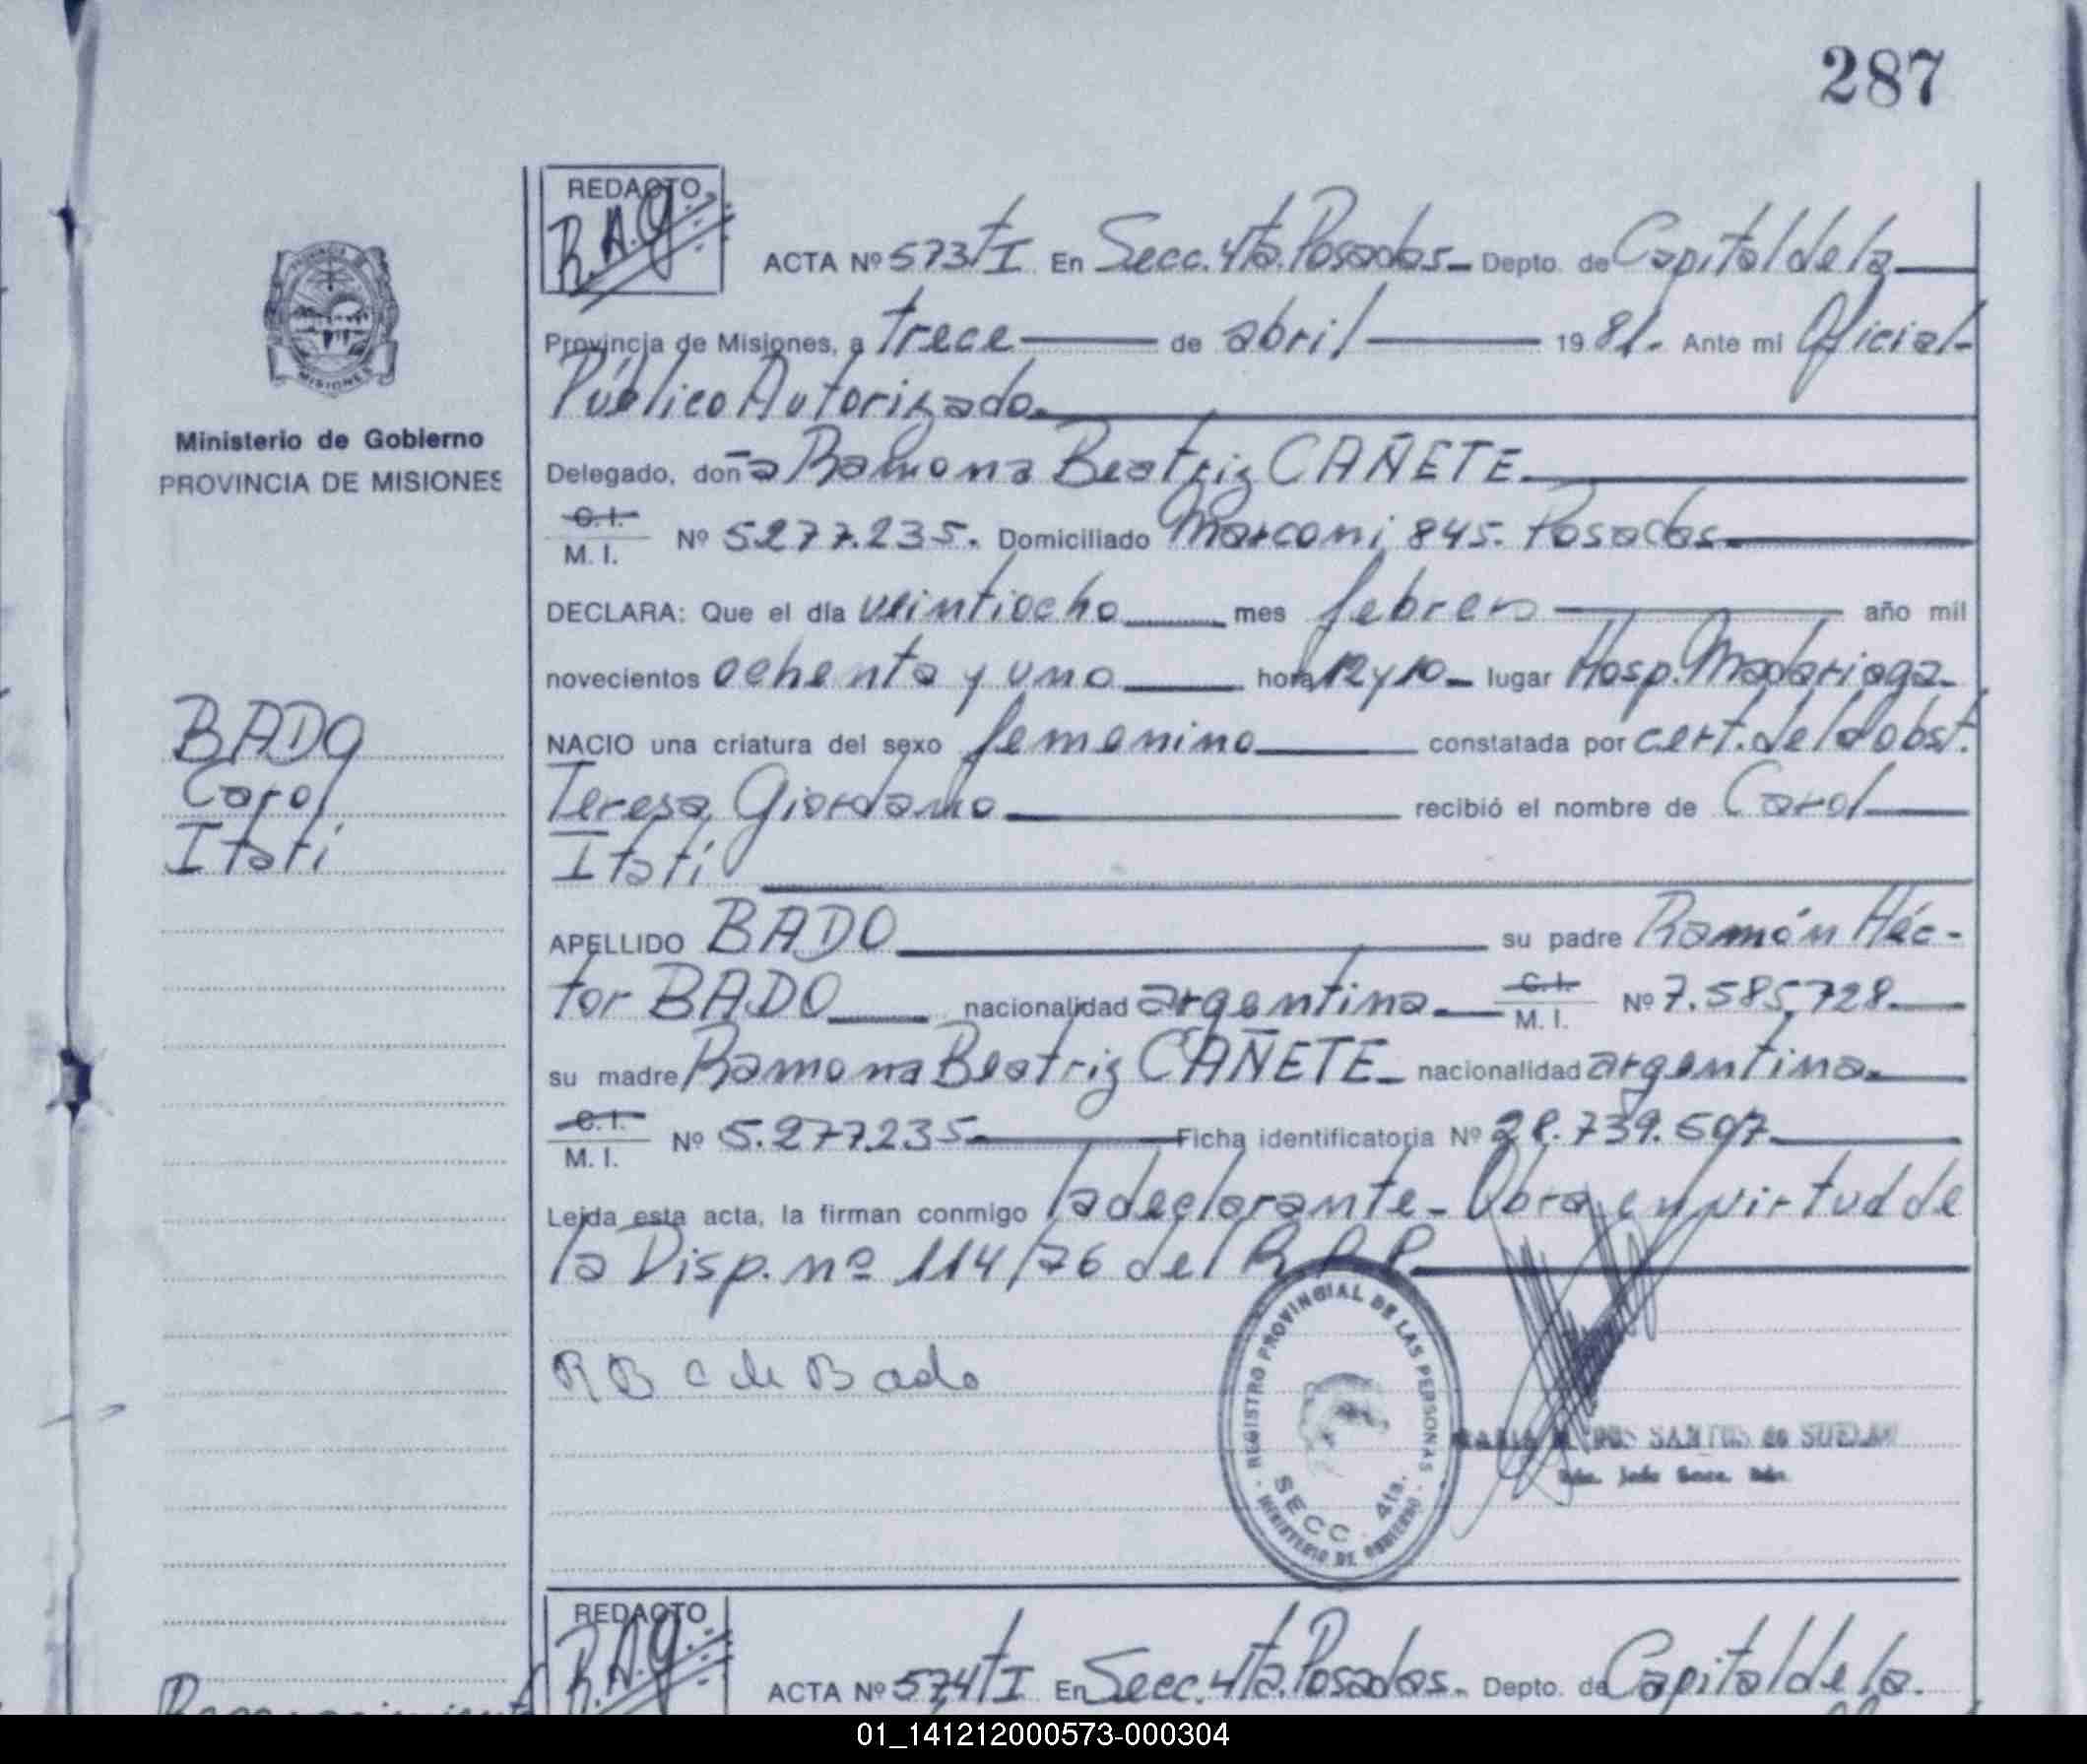 287
REDACTO
R.A.G.
ACTA Nº 573 tI En Secc. 4ta. Posadas Depto. de Capital de la
Provincia de Misiones, a trece de abril 1981. Ante mi Oficial
Público Autorizado.
Ministerio de Gobierno
PROVINCIA DE MISIONES
Delegado, doña Ramona Beatriz CAÑETE.
C.I.
M. I. Nº 5.277.235. Domiciliado Marconi 845. Posadas.
DECLARA: Que el día veintiocho mes febrero año mil
novecientos ochenta y uno hora 12 y 10 lugar Hosp. Madariaga
BADO
Carol
Itatí
NACIO una criatura del sexo femenino constatada por cert. de la obst.
Teresa Giordano recibió el nombre de Carol
Itatí
APELLIDO BADO su padre Ramón Héc-
tor BADO nacionalidad argentina. C.I. M. I. Nº 7.585.728.
su madre Ramona Beatriz CAÑETE nacionalidad argentina.
C.I.
M. I. Nº 5.277.235 Ficha identificatoria Nº 28.739.507
Leída esta acta, la firman conmigo la declarante. Obra en virtud de
la Disp. nº 114/76 del R.P.P.
R B C de Bado
REGISTRO PROVINCIAL DE LAS PERSONAS
SECC. 4ta.
MINISTERIO DE GOBIERNO
DOS SANTOS de
REDACTO
R.A.G.
ACTA Nº 574 tI En Secc. 4ta. Posadas. Depto. de Capital de la.
01_141212000573-000304